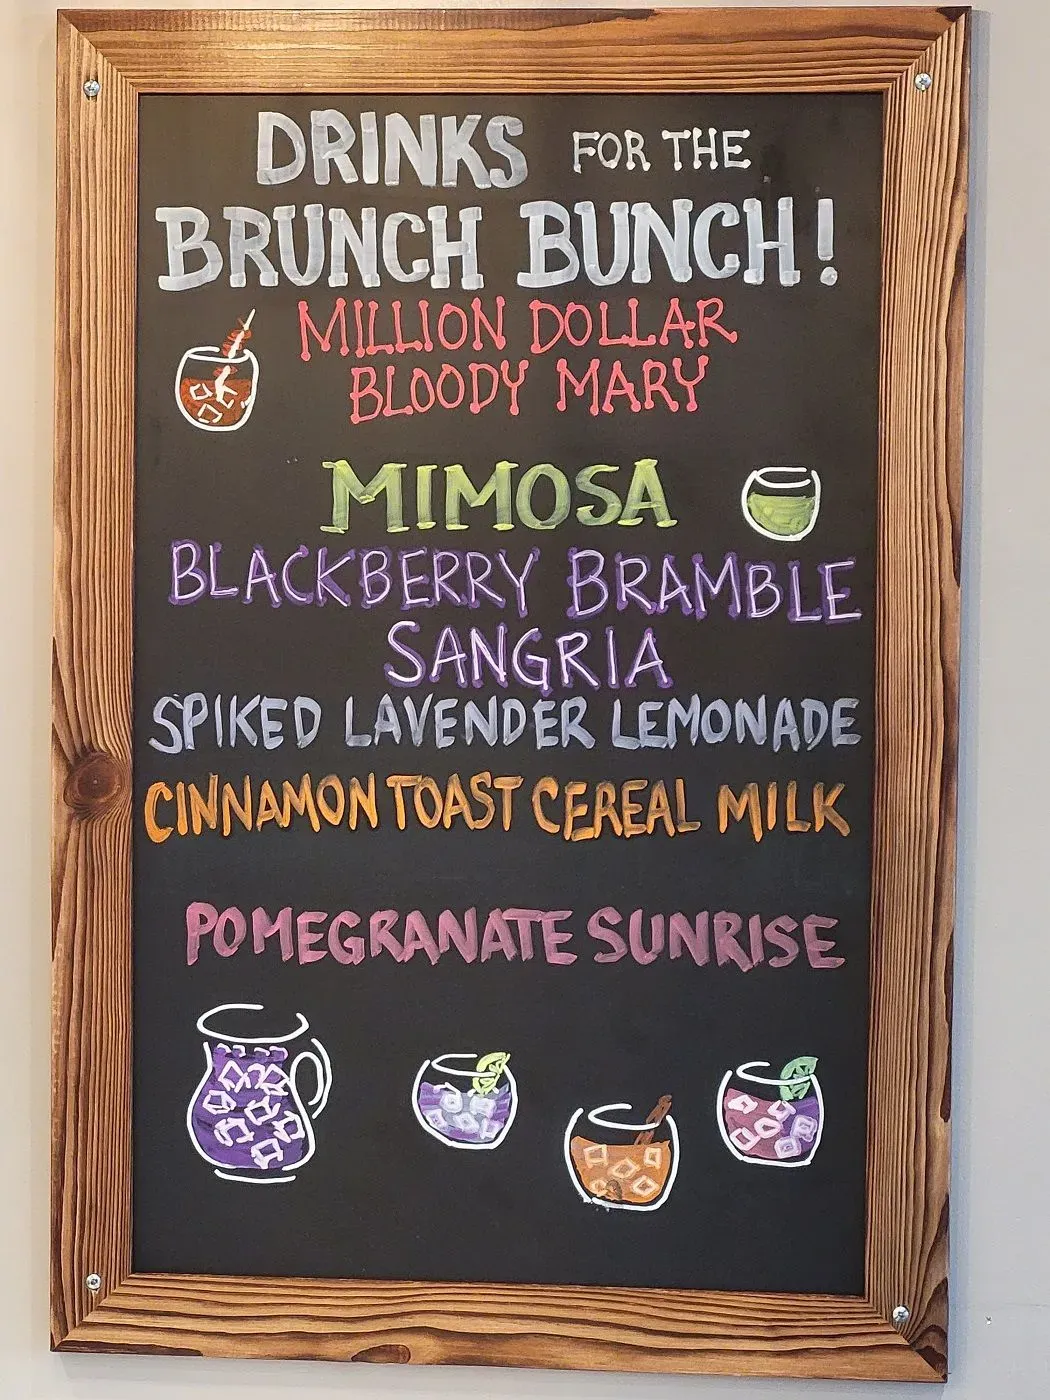 DRINKS FOR THE
BRUNCH BUNCH!
MILLION DOLLAR
BLOODY MARY
MIMOSA
BLACKBERRY BRAMBLE
SANGRIA
SPIKED LAVENDER LEMONADE
CINNAMON TOAST CEREAL MILK
POMEGRANATE SUNRISE